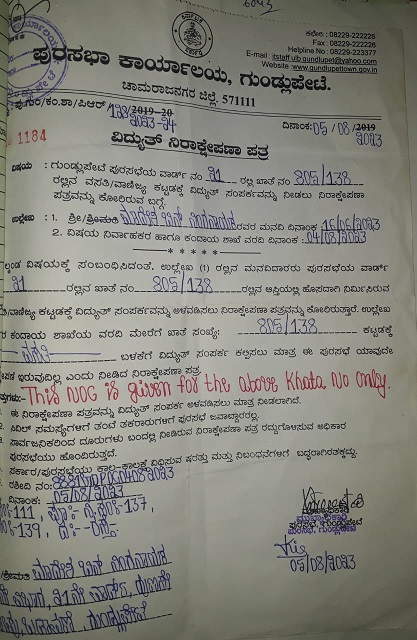 ಕಛೇರಿ : 08229-222226
Fax : 08229-222226
Helpline No : 08229-223377
E-mail : itstaff_ulb_gundlupet@yahoo.com
Website :www.gundlupettown.gov.in
ಪುರಸಭಾ ಕಾರ್ಯಾಲಯ, ಗುಂಡ್ಲುಪೇಟೆ.
ಚಾಮರಾಜನಗರ ಜಿಲ್ಲೆ. 571111
ಪು.ಗುಂ/ಕಂ.ಶಾ/ಪಿಆರ್/ 2019-20
2023-24
ದಿನಾಂಕ:05/08/2019
2023
1184
ವಿದ್ಯುತ್ ನಿರಾಕ್ಷೇಪಣಾ ಪತ್ರ
ವಿಷಯ : ಗುಂಡ್ಲುಪೇಟೆ ಪುರಸಭೆಯ ವಾರ್ಡ್ ನಂ 21 ರಲ್ಲಿ ಖಾತೆ ನಂ 805/138
ರಲ್ಲಿನ ವಸತಿ/ವಾಣಿಜ್ಯ ಕಟ್ಟಡಕ್ಕೆ ವಿದ್ಯುತ್ ಸಂಪರ್ಕವನ್ನು ನೀಡಲು ನಿರಾಕ್ಷೇಪಣಾ
ಪತ್ರವನ್ನು ಕೋರಿರುವ ಬಗ್ಗೆ.
ಉಲ್ಲೇಖ : 1. ಶ್ರೀ/ಶ್ರೀಮತಿ ಮಾದೇಶ ಬಿನ್ ರವರ ಮನವಿ ದಿನಾಂಕ :16/06/2023
2. ವಿಷಯ ನಿರ್ವಾಹಕರ ಹಾಗೂ ಕಂದಾಯ ಶಾಖೆ ವರದಿ ದಿನಾಂಕ :04/08/2023
* * * * *
ವಿಷಯಕ್ಕೆ ಸಂಬಂಧಿಸಿದಂತೆ, ಉಲ್ಲೇಖ (1) ರಲ್ಲಿನ ಮನವಿದಾರರು ಪುರಸಭೆಯ ವಾರ್ಡ್
21 ರಲ್ಲಿನ ಖಾತೆ ನಂ 805/138 ರಲ್ಲಿನ ಆಸ್ತಿಯಲ್ಲಿ ಹೊಸದಾಗಿ ನಿರ್ಮಿಸಿರುವ
/ವಾಣಿಜ್ಯ ಕಟ್ಟಡಕ್ಕೆ ವಿದ್ಯುತ್ ಸಂಪರ್ಕವನ್ನು ಅಳವಡಿಸಲು ನಿರಾಕ್ಷೇಪಣಾ ಪತ್ರವನ್ನು ಕೋರಿರುತ್ತಾರೆ. ಉಲ್ಲೇಖ
ರ ಕಂದಾಯ ಶಾಖೆಯ ವರದಿ ಮೇರೆಗೆ ಖಾತೆ ಸಂಖ್ಯೆ: 805/138 ಕಟ್ಟಡಕ್ಕೆ
ವಸತಿ ಬಳಕೆಗೆ ವಿದ್ಯುತ್ ಸಂಪರ್ಕ ಕಲ್ಪಿಸಲು ಮಾತ್ರ ಈ ಪುರಸಭೆ ಯಾವುದೇ
ಇರುವುದಿಲ್ಲ ಎಂದು ನೀಡಿದ ನಿರಾಕ್ಷೇಪಣಾ ಪತ್ರ
This NOC is given for the above Khata No only.
ಈ ನಿರಾಕ್ಷೇಪಣಾ ಪತ್ರವನ್ನು ವಿದ್ಯುತ್ ಸಂಪರ್ಕ ಅಳವಡಿಸಲು ಮಾತ್ರ ನೀಡಲಾಗಿದೆ.
ಸಿವಿಲ್ ಸಮಸ್ಯೆಗಳಿಗೆ ತಂಟೆ ತಕರಾರುಗಳಿಗೆ ಪುರಸಭೆ ಜವಾಬ್ದಾರರಲ್ಲ.
ಸಾರ್ವಜನಿಕರಿಂದ ದೂರುಗಳು ಬಂದಲ್ಲಿ ನೀಡಿರುವ ನಿರಾಕ್ಷೇಪಣಾ ಪತ್ರ ರದ್ದುಗೊಳಿಸುವ ಅಧಿಕಾರ
ಪುರಸಭೆಯು ಹೊಂದಿರುತ್ತದೆ.
ಸರ್ಕಾರ/ಪುರಸಭೆಯು ಕಾಲ-ಕಾಲಕ್ಕೆ ವಿಧಿಸುವ ಷರತ್ತು ಮತ್ತು ನಿಬಂಧನೆಗಳಿಗೆ ಬದ್ಧರಾಗಿರತಕ್ಕದ್ದು.
ರಶೀದಿ ನಂ:
ದಿನಾಂಕ: 05/08/2023
-111, -137,
-139,
ಪುರಸಭೆ, ಗುಂಡ್ಲುಪೇಟೆ
05/08/2023
/ಶ್ರೀಮತಿ ಮಾದೇಶ ಬಿನ್
21ನೇ ವಾರ್ಡ್,